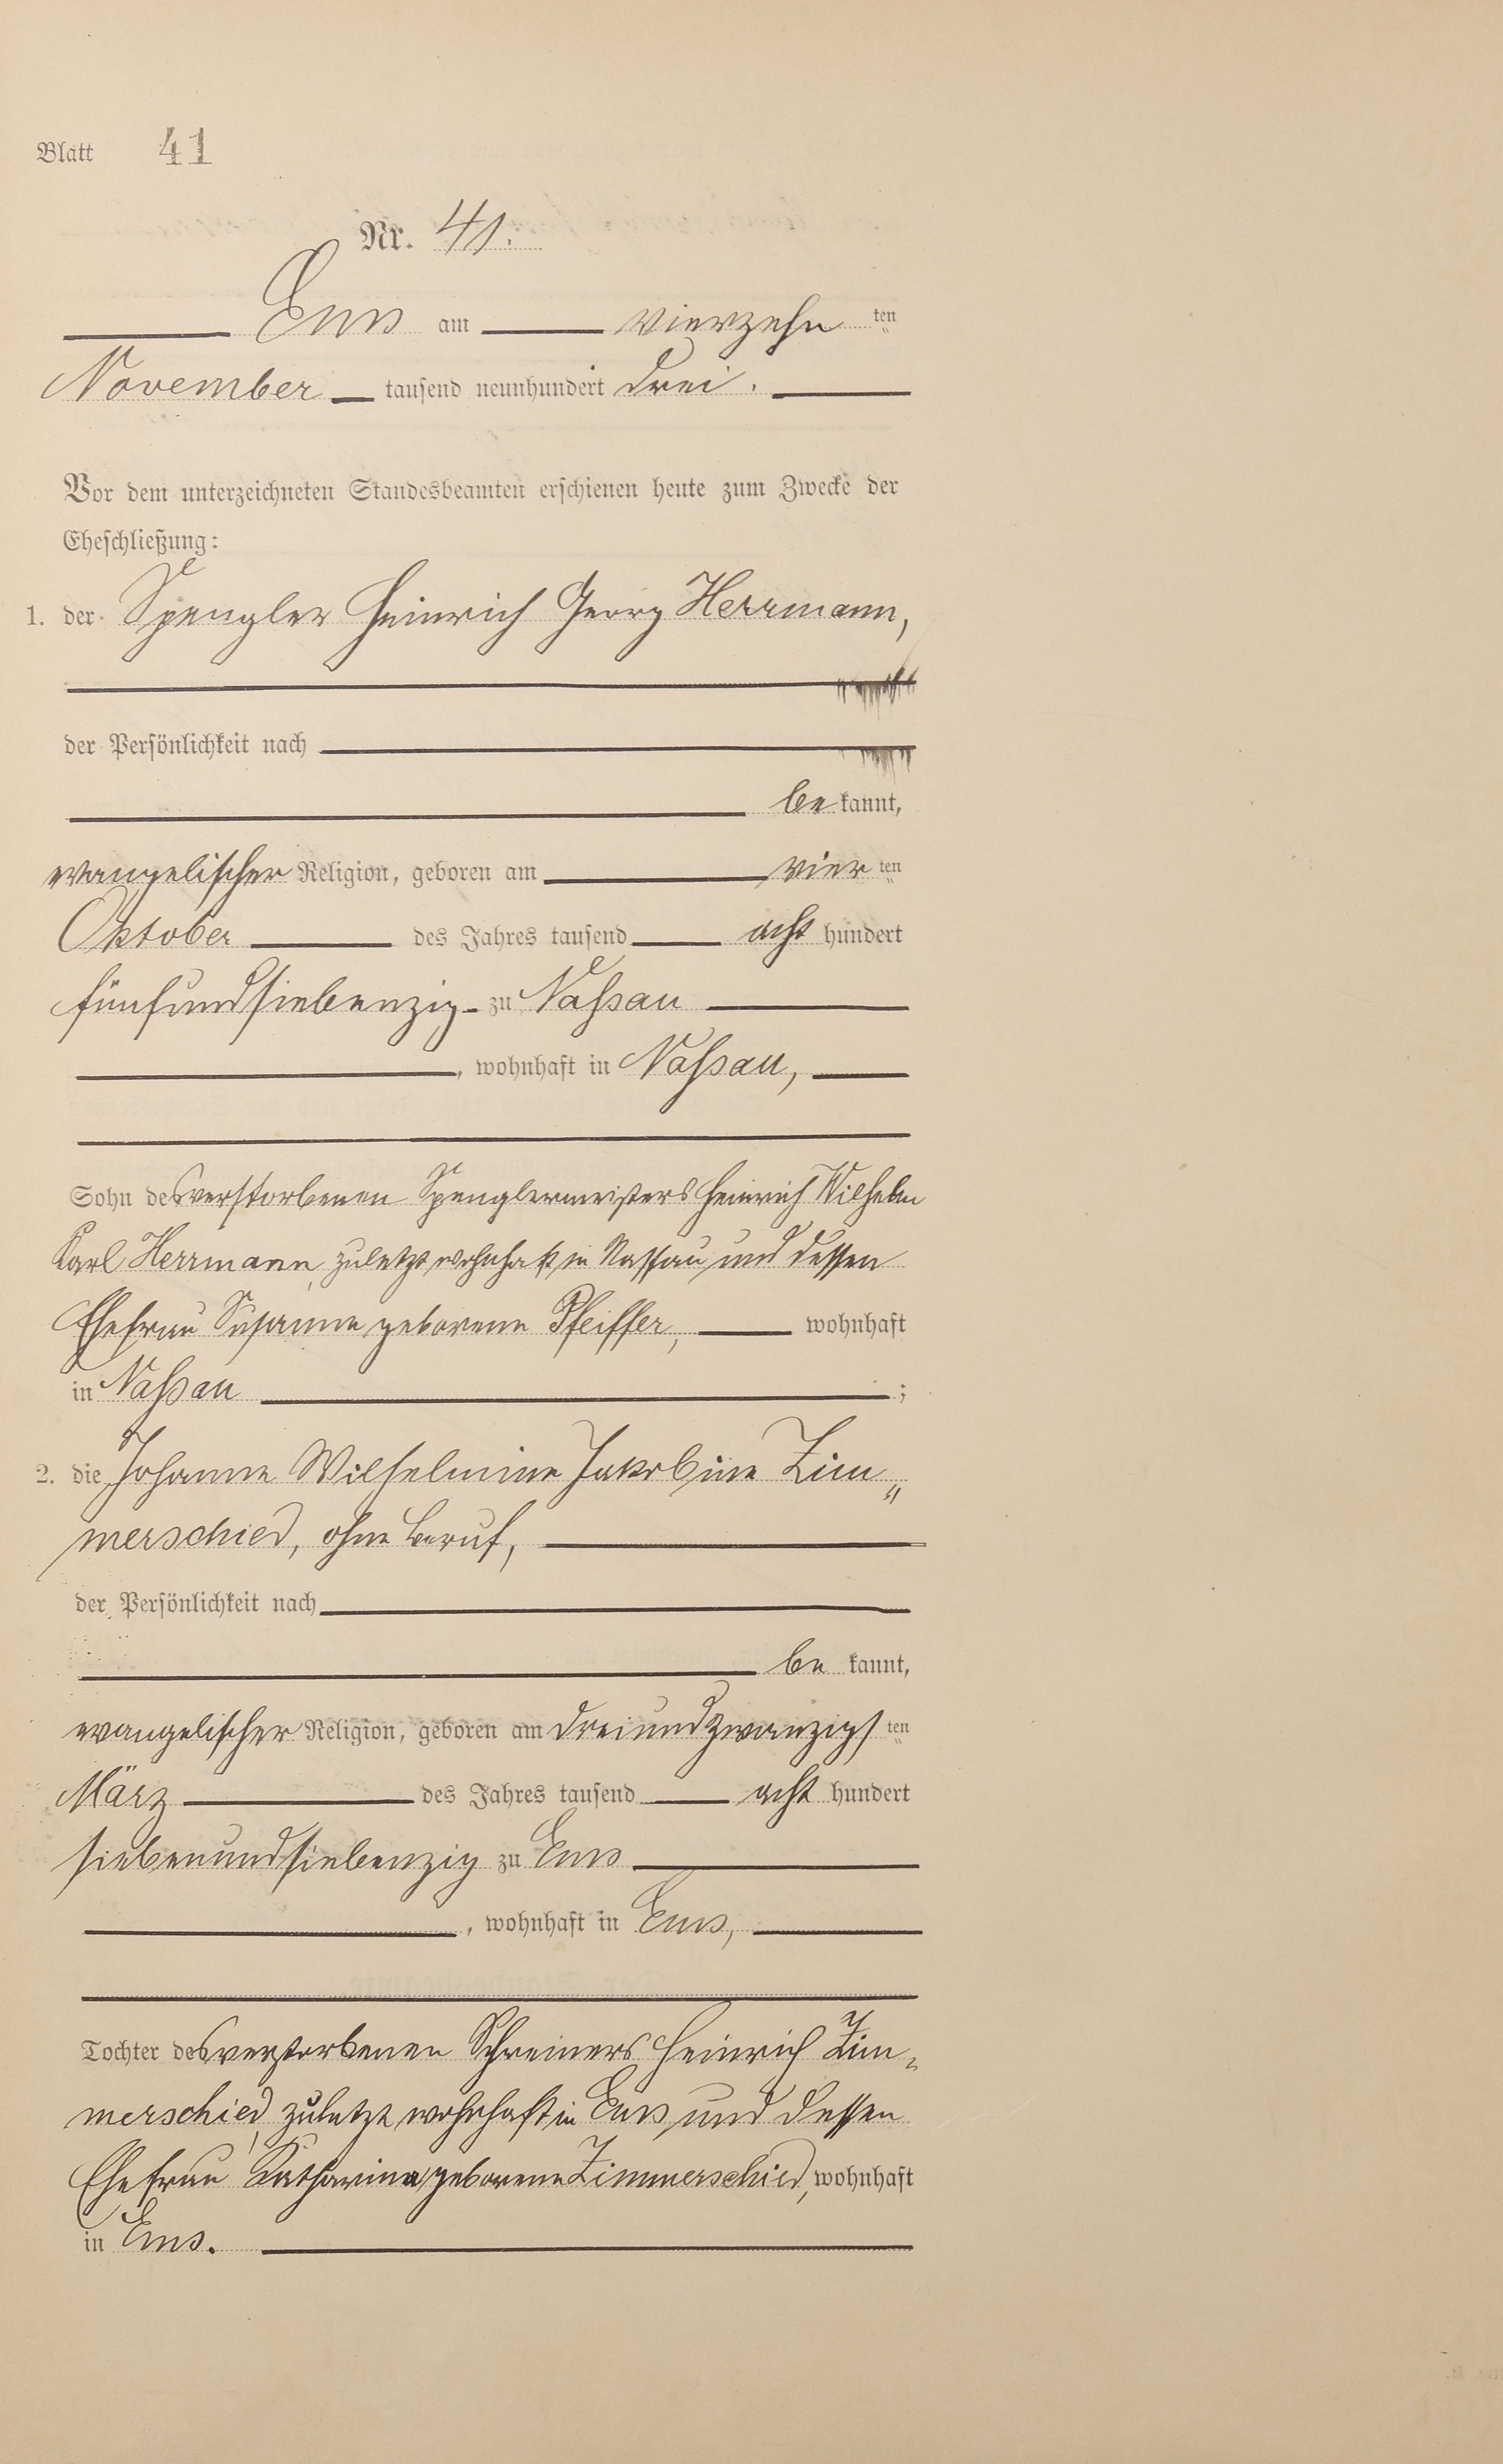 Blatt 41
Nr. 41.
Ems am vierzehn ten
November tausend neunhundert drei.
Vor dem unterzeichneten Standesbeamten erschienen heute zum Zwecke der
Eheschließung:
1. der Spengler Heinrich Georg Herrmann,
der Persönlichkeit nach
be kannt,
evangelischer Religion, geboren am vier ten
Oktober des Jahres tausend acht hundert
fünfundsiebenzig zu Nassau
, wohnhaft in Nassau,
Sohn des verstorbenen Spenglermeisters Heinrich Wilhelm
Karl Herrmann, zuletzt wohnhaft in Nassau und dessen
Ehefrau Susanna geborene Pfeiffer, wohnhaft
in Nassau ;
2. die Johanna Wilhelmine Jakobine Zim„
merschied, ohne Beruf,
der Persönlichkeit nach
be kannt,
evangelischer Religion, geboren am dreiundzwanzigs ten
März des Jahres tausend acht hundert
siebenundsiebenzig zu Ems
, wohnhaft in Ems,
Tochter des verstorbenen Schreiners Heinrich Zim„
merschied, zuletzt wohnhaft in Ems und dessen
Ehefrau Katharina geborene Zimmerschied, wohnhaft
in Ems.